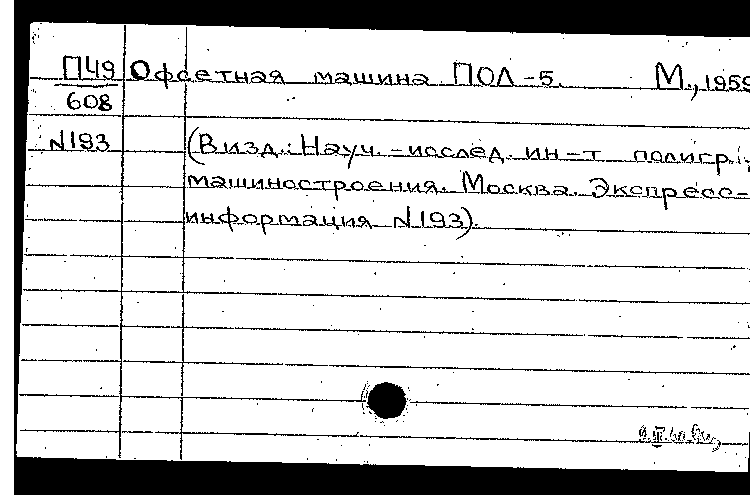 П49 Офсетная машина ПОЛ-5. М., 1959
608
N193 (В изд.: Науч.-исслед. ин-т полигр.
машиностроения. Москва. Экспресс-
информация N193).